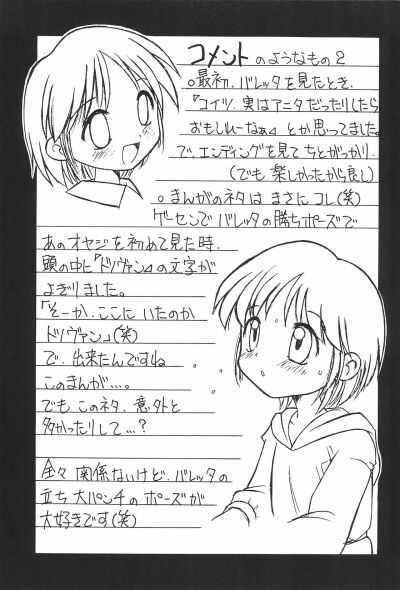 コメントのようなもの2
○最初、バレッタを見たとき、
『コイツ、実はアニタだったりしたら
おもしれーなぁ』とか思ってました。
で、エンディングを見てちとがっかり.
(でも楽しかったから良し)
○まんがのネタはまさにコレ(笑)
ゲーセンでバレッタの勝ちポーズで
あのオヤジを初めて見た時.
頭の中に『ドノヴァン』の文字が
よぎりました。
「そーか、ここにいたのか
ドノヴァン」(笑)
で、出来たんですね
このまんが…。
でもこのネタ、意外と
多かったりして…?
全々関係ないけど、バレッタの
立ち大パンチのポーズが
大好きです(笑)